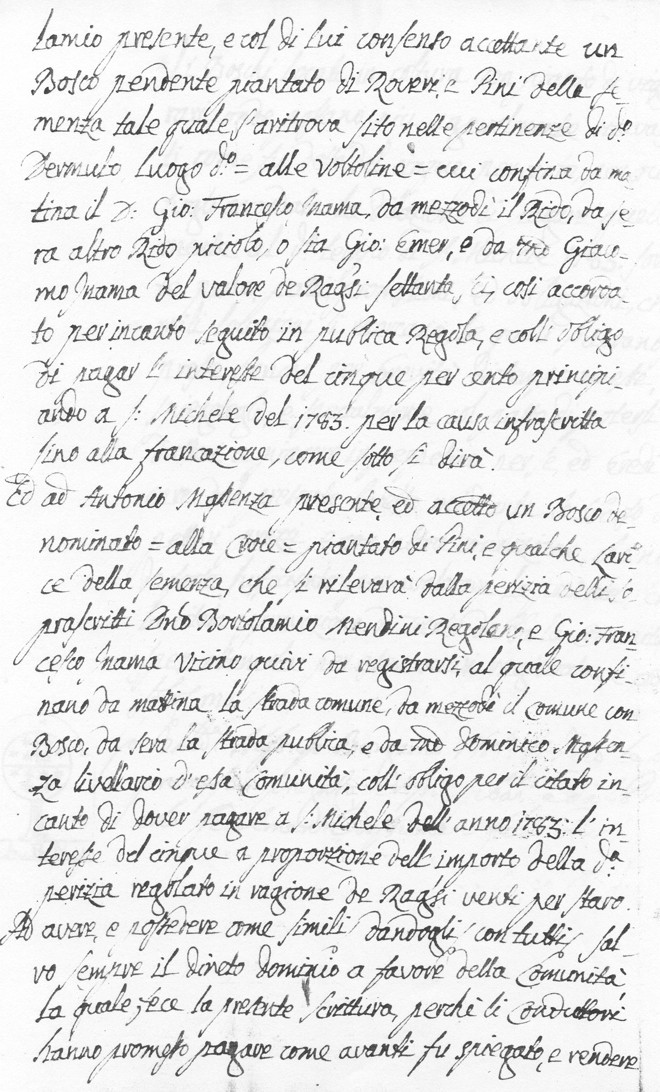 lamio presente, e col di lui consenso accettante un
Bosco pendente piantato di Roveri, e Pini della se-
menza tale quale s'aritrova sito nelle pertinenze di do:
Dermulo luogo do = alle voltoline = cui confina da ma-
tina il D: Gio: Francesco Inama, da mezzodì il Rido, da se-
ra altro Rido piciolo, o sia Gio: Emer, e da Giaco-
mo Inama del valore de Ragsi settanta sei, così accorda-
to per incanto seguito in publica Regola, e coll' obligo
di pagar l' interesse del cinque per cento principi-
ando a S: Michele del 1783: per la causa infrascritta
sino alla francazione, come sotto si dirà
Ed ad Antonio Massenza presente, ed accetto un Bosco de-
nominato = alla Croce = piantato di Pini, e qualche Lari-
ce della semenza, che si rileverà dalla perizia delli so-
prascritti Dno Bortolamio Mendini Regolano, e Gio: Fran
cesco Inama Vicino quivi da registrarsi, al quale confi-
nano da mattina la strada comune, da mezzodì il Comune con
Bosco, da sera la strada publica, e da Dominico Massen-
za livellario d'essa Comunità, coll' obligo per il citato in-
canto di dover pagare a S: Michele dell' anno 1783: l' in-
teresse del cinque a proporzione dell' importo della da:
perizia regolato in ragione de Ragsi venti per staro.
Ad avere, e possedere come simili dandogli con tutti, sal-
vo sempre il direto dominio a favore della Comunità
la quale fece la presente scrittura, perchè li Conduttori
hanno promesso pagare come avanti fu spiegato, e rendere